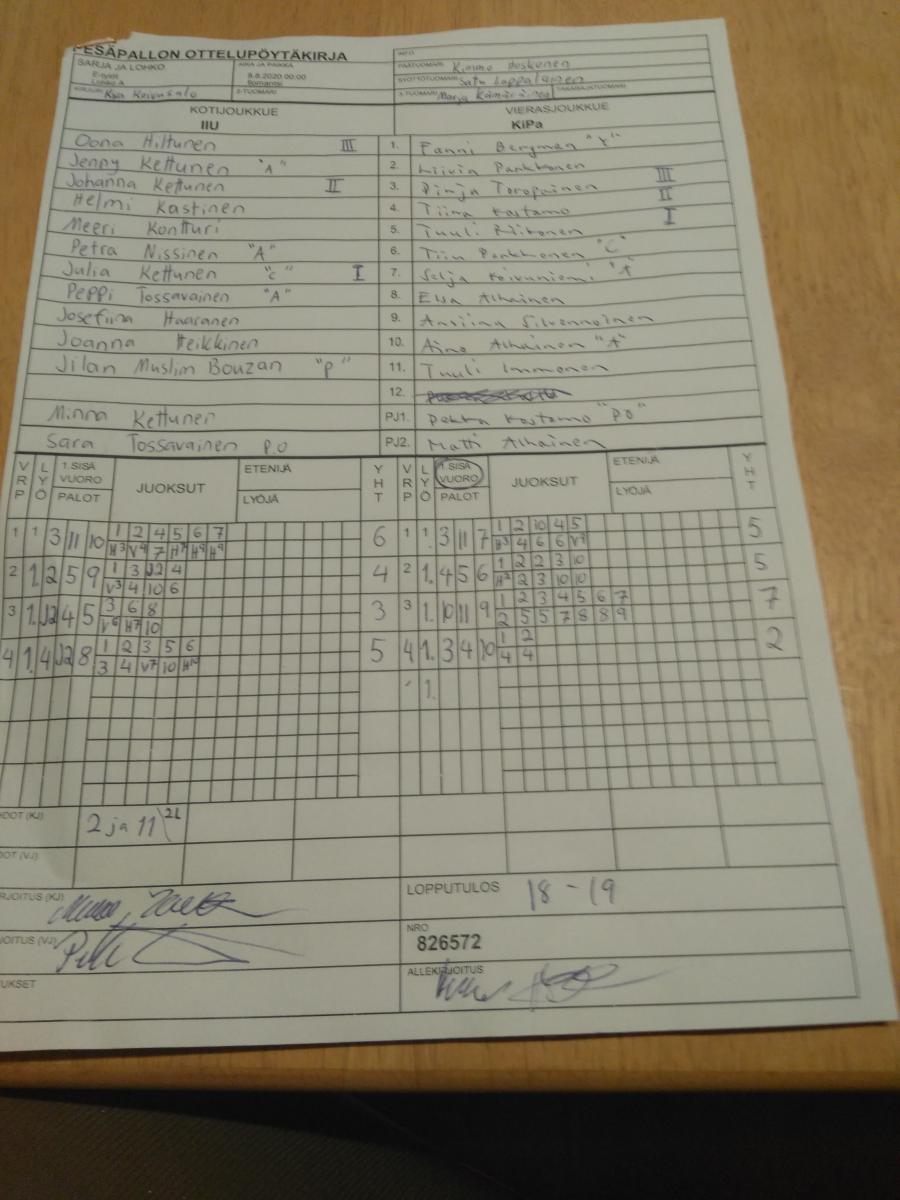 PESÄPALLON OTTELUPÖYTÄKIRJA
INFO
SARJA JA LOHKO AIKA JA PAIKKA PÄÄTUOMARI Kimmo
E-tytöt 9.8.2020 00:00 SYÖTTÖTUOMARI Satu Loppalainen
Lohko A Ilomantsi
KIRJURI Kaja Koivusalo 2-TUOMARI 3-TUOMARI Marja Kämäräinen TAKARAJATUOMARI
KOTIJOUKKUE VIERASJOUKKUE
IIU KiPa
Oona Hiltunen III 1. Fanni Bergman "Y"
Jenny Kettunen "A" 2. Liivia Pankkonen
Johanna Kettunen II 3. Pinja Toropainen III
Helmi Kastinen 4. Tiina Kostamo II
Meeri Kontturi 5. Tuuli Piikonen I
Petra Nissinen "A" 6. Tiiu Pankkonen "C"
Julia Kettunen "C" I 7. Selja Koivuniemi "A"
Peppi Tossavainen "A" 8. Elsa Alhainen
Josefiina Haaranen 9. Anniina Silvennoinen
Joanna Heikkinen 10. Aino Alhainen "A"
Jilan Muslim Bouzan "P" 11. Tuuli Immonen
12.
Minna Kettunen PJ1. Pekka Kostamo "PO"
Sara Tossavainen P.O PJ2. Matti Alhainen
VRP LYÖ 1.SISÄ VUORO PALOT JUOKSUT ETENIJÄ LYÖJÄ YHT VRP LYÖ 1.SISÄ VUORO PALOT JUOKSUT ETENIJÄ LYÖJÄ YHT
1 1 3 11 10 1 2 4 5 6 7 6 1 1. 3 11 7 1 2 10 4 5 5
H3 V4 7 H7 H9 H9 H3 4 6 6 V7
2 1. 2 5 9 1 3 12 4 4 2 1. 4 5 6 1 2 2 3 10 5
V3 4 10 6 H2 2 3 10 10
3 1. 12 4 5 3 6 8 3 3 1. 10 11 9 1 2 3 4 5 6 7 7
V6 H7 10 2 5 5 7 8 8 9
4 1. 4 12 8 1 2 3 5 6 5 4 1. 3 4 10 1 2 2
3 4 V7 10 H10 4 4
1.
OOT (KJ) 2 ja 11 2L
OOT (VJ)
RJOITUS (KJ) LOPPUTULOS 18 - 19
JOITUS (VJ) NRO
826572
UKSET ALLEKIRJOITUS